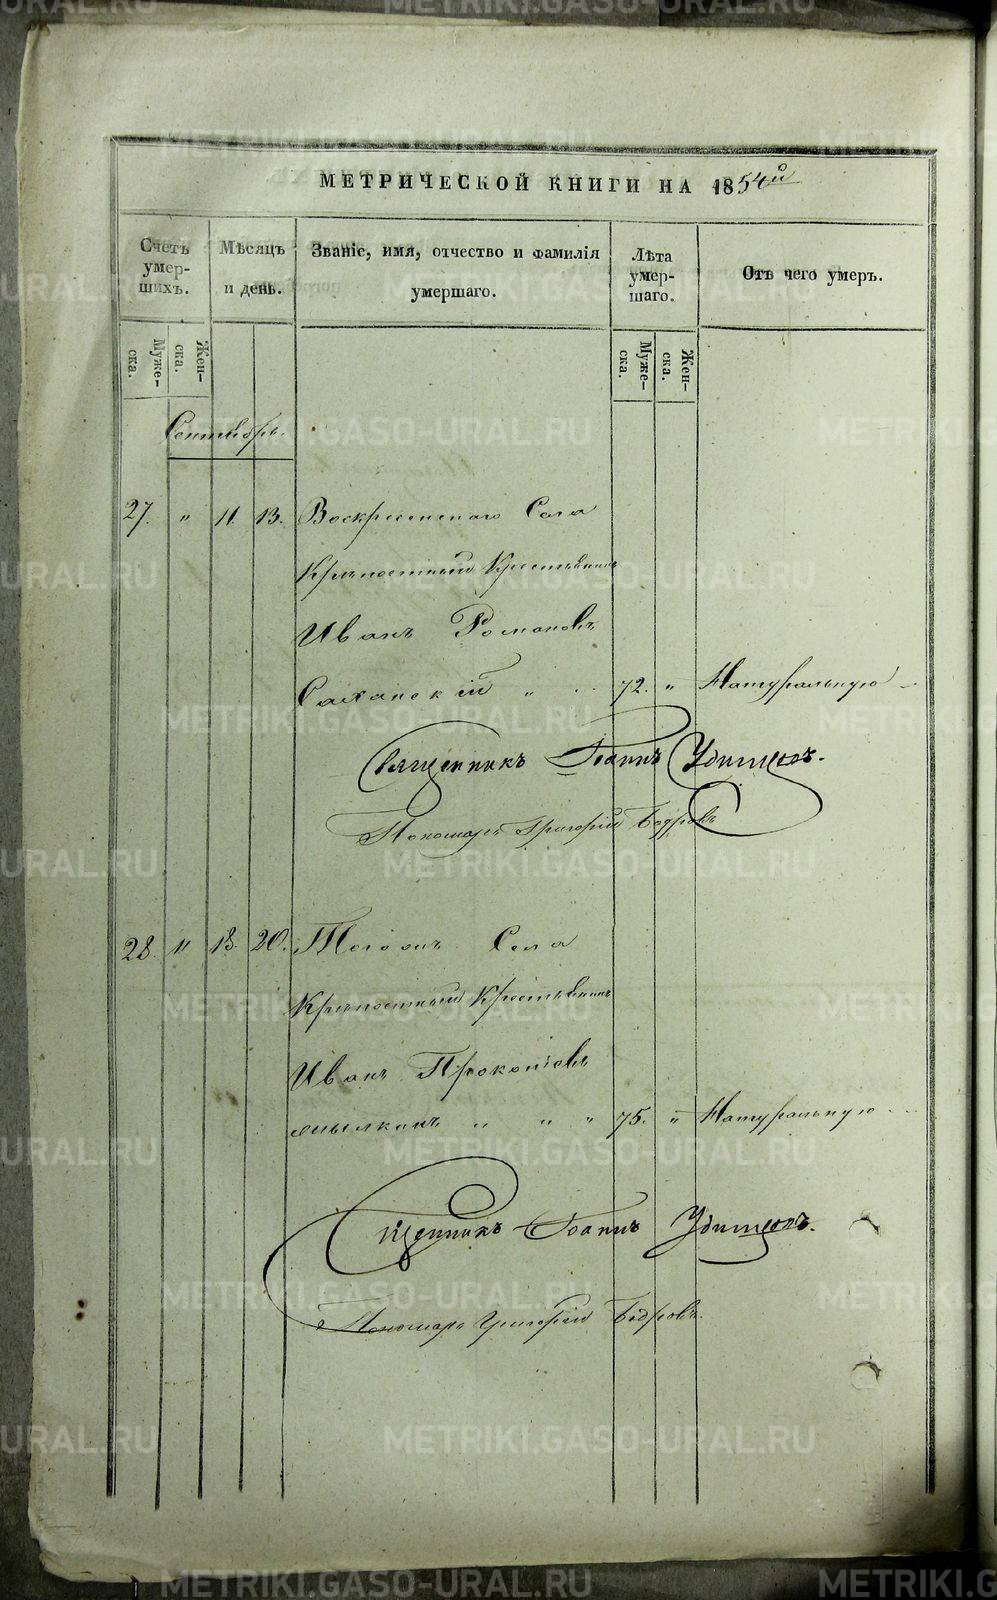 МЕТРИЧЕСКОЙ КНИГИ НА 1854й
Счетъ умер-шихъ.
Мѣсяцъ и день.
Званіе, имя, отчество и фамилія умершаго.
Лѣта умер-шаго.
Отъ чего умеръ.
Муже-ска.
Жен-ска.
Муже-ска.
Жен-ска.
Сентябрь.
27. " 11. 13. Воскресенскаго Села
Крѣпостный Крестьянинъ
Иванъ Романовъ
72. " Натуральную
Священникъ Іоаннъ Удинцовъ.
Пономарь Григорій Бодровъ
28. " 13. 20. Тогожъ Села
Крѣпостный Крестьянинъ
Иванъ Прокопіевъ
" " " 75. " Натуральную
Іоаннъ Удинцовъ.
Пономарь Григорій Бодровъ.
METRIKI.GASO-URAL.RU